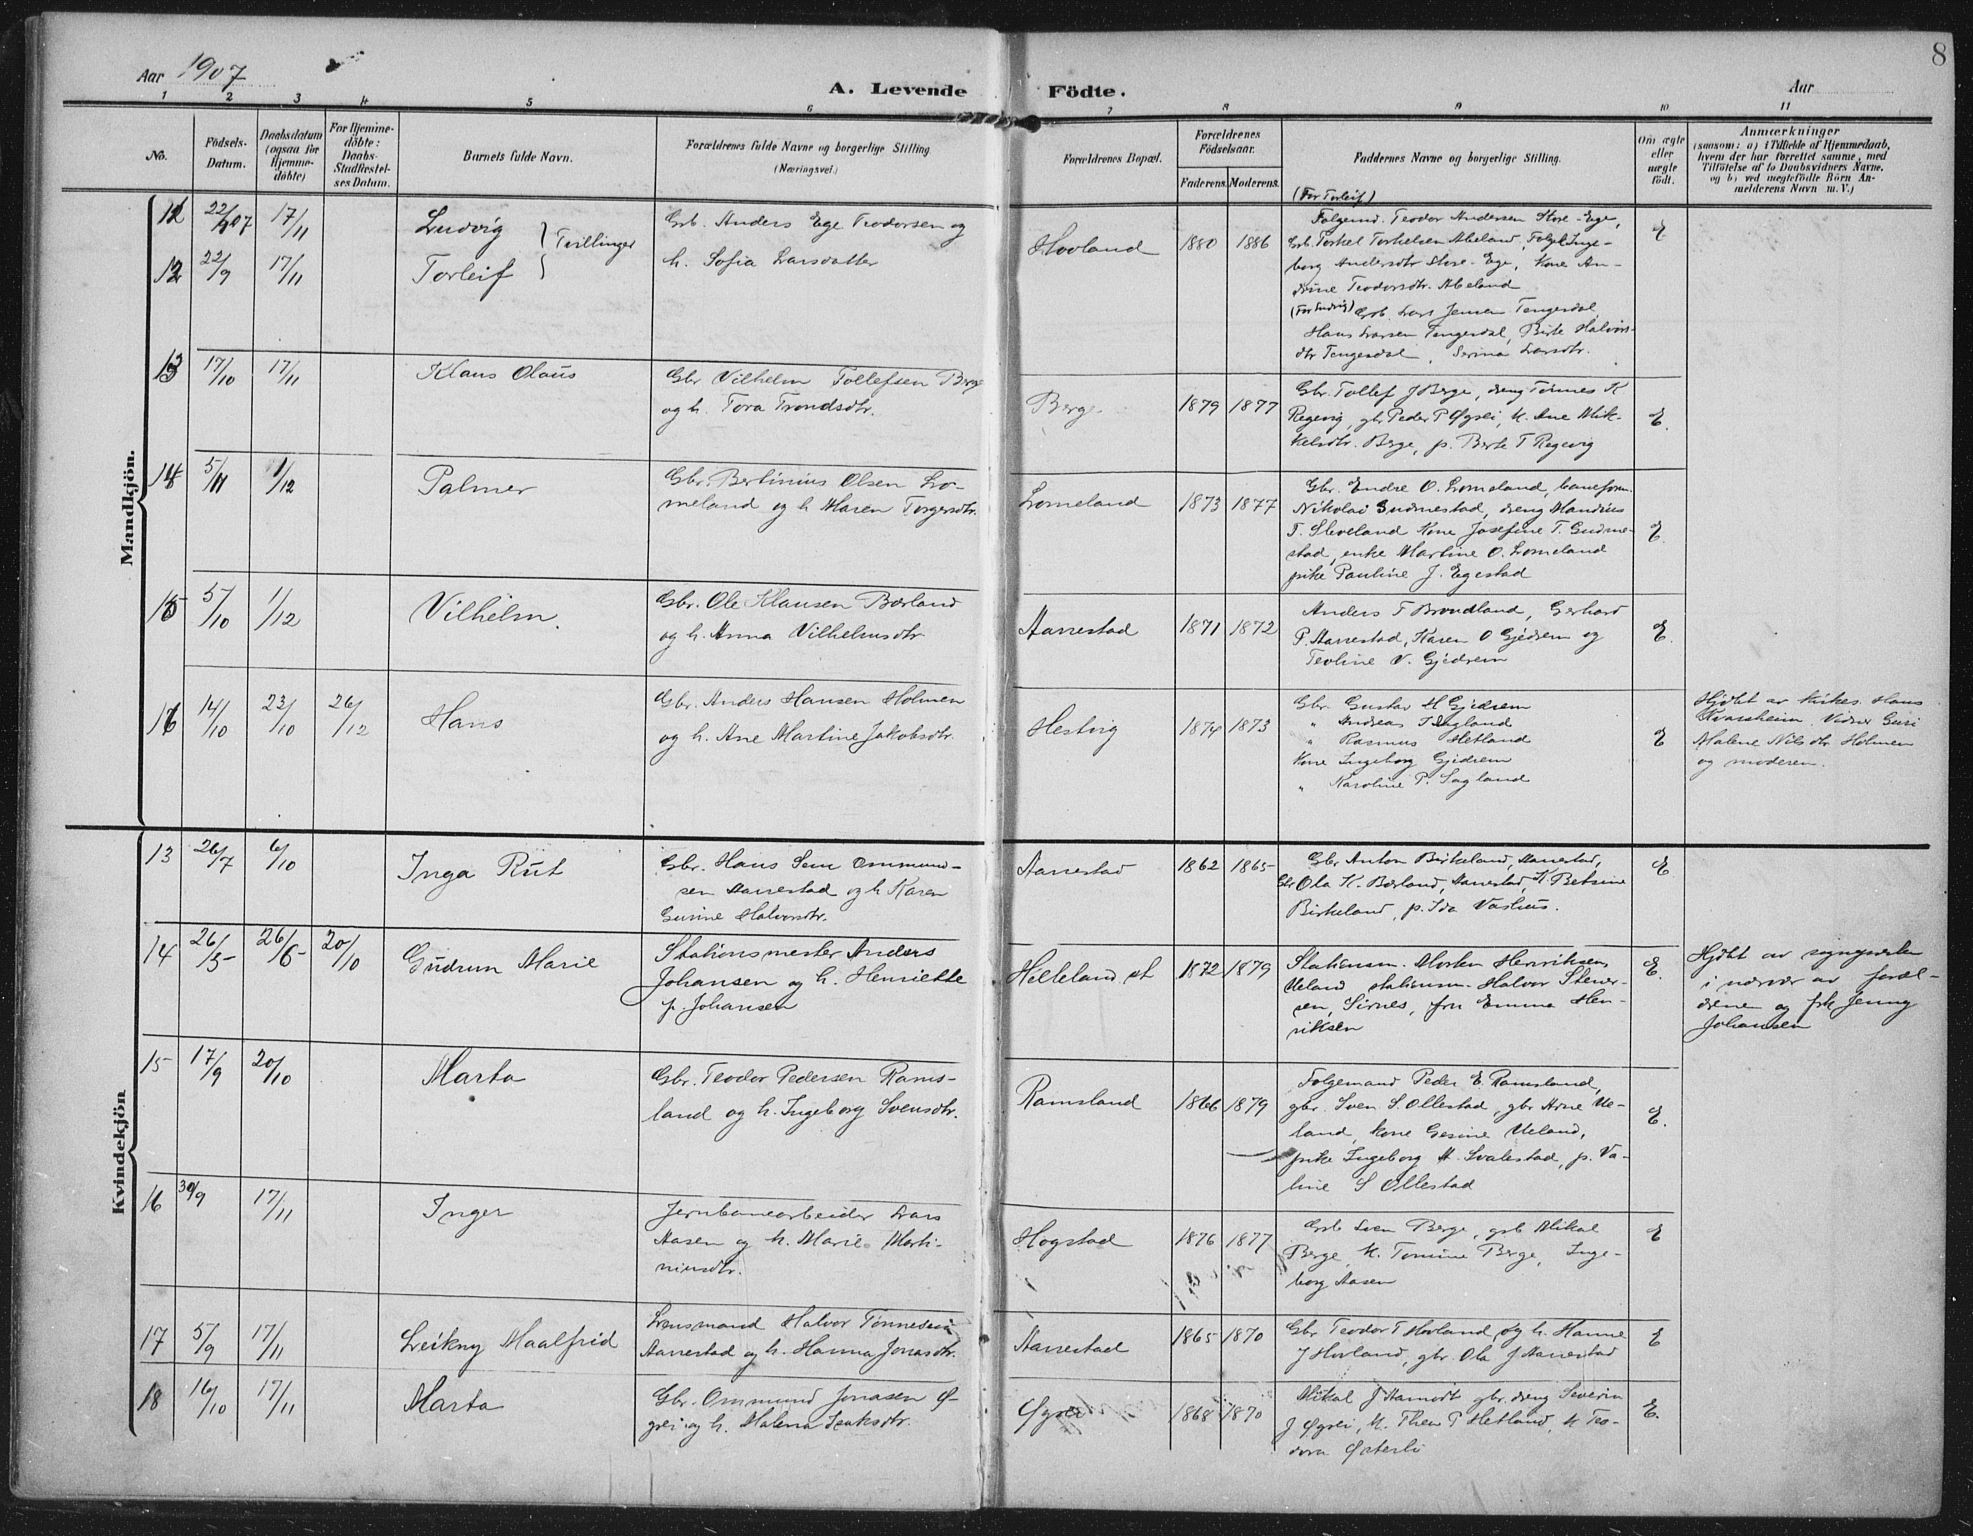 8
Aar 1907
A. Levende Födte.
Aar
1 2 3 4 5 6 7 8 9 10 11
No.
Födsels-
Datum.
Daabsdatum
(ogsaa for
Hjemme-
döbte)
For Hjemme-
döbte:
Daabs-
Stadfæstel-
ses Datum.
Barnets fulde Navn.
Forældrenes fulde Navne og borgerlige Stilling
(Næringsvei.)
Forældrenes Bopæl.
Forældrenes
Födselsaar.
Faderens. Moderens.
Faddernes Navne og borgerlige Stilling.
Om ægte
eller
uægte
födt.
Anmærkninger
(saasom: a) i Tilfælde af Hjemmedaab,
hvem der har forrettet samme, med
Tilföielse af to Daabsvidners Navne.
og b) ved uægtefödte Börn An-
melderens Navn m. V.)
Mandkjön.
22/9 07 17/11
Ludvig
Tvillinger
Grb. Anders Ege Teodorsen og
12 22/9 17/11
Torleif
h. Sofia Larsdatter
Hovland
1880 1886
(For Torleif)
Folgemd. Teodor Andersen Store-Ege,
Grb. Torkel Torkelsen Abeland, Inge-
borg Andersdtr Store-Ege, Kone An-
drine Teodorsdtr. Abeland
(For Ludvig) Grb. Lars Jensen Tengesdal,
Hans Larsen Tengesdal, Birte Halvors-
dtr Tengesdal, Serina Larsdtr.
E
13 17/10 17/11
Klaus Olaus
Gbr Vilhelm Tollefsen Berge
og h. Tora Trondsdtr.
Berge
1879 1877
Gbr. Tollef J Berge, dreng Tønnes K
Regevig, gbr Peder P Øgrei, K. Ane Mik-
kelsdtr. Berge, p. Berte T Regevig
E.
14 5/11 1/12
Palmer
Gbr. Bertinius Olsen Lo-
meland og h Maren Torgersdtr.
Lomeland
1873 1877
Gbr. Endre O. Lomeland, baneform.
Nikolai Gudmestad, dreng Mandius
T. Sleveland Kone Josefine T. Gudme-
stad, enke Martine O. Lomeland
pike Pauline J. Egestad
E.
15 5/10 1/12
Vilhelm.
Gbr. Ole Klausen Børland
og h. Anna Vilhelmsdtr
Aarrestad
1871 1872
Anders T Brøndland, Gerhard
P. Aarrestad, Karen O Gjedrem og
Teoline V. Gjedrem
E.
16 14/10 23/10 26/12
Hans
Gbr. Anders Hansen Holmen
og h. Ane Martine Jakobsdtr.
Hestvig
1874 1873
Gbr. Gustav H Gjedrem
" Andreas Sagland
" Rasmus Hetland
Kone Ingeborg Gjedrem
" Karoline P. Sagland
E
Hjdbt av kirkes. Hans
Kvassheim. Vidner Guri
Malene Nilsdtr Holmen
og moderen.
Kvindekjön
13 26/7 6/10
Inga Rut
Gbr. Hans Sem Ommund-
sen Aarrestad og h Karen
Gurine Halvorsdtr.
Aarrestad
1862 1865
Gbr Anton Birkeland, Aarrestad,
Gbr Ola K. Børland, Aarrestad, K. Betsine
Birkeland, p. Ida Vashus.
E
14 26/5 26/6 20/10
Gudrun Marie
Stationsmester Anders
Johansen og h. Henriette
f. Johansen
Helleland st
1872 1879
Stationsm. Morten Henriksen,
Ueland stationsm. Halvor Stener-
sen, Sirnes, fru Emma Hen-
riksen
E.
Hjdbt av sogneprsten
i nærvær av foræl-
drene og frk Jenny
Johansen
15 17/9 20/10
Marta
Gbr. Teodor Pedersen Rams-
land og h. Ingeborg Svensdtr.
Ramsland
1866 1879
Folgemand Peder E. Ramsland,
gbr. Sven S. Ollestad, gbr Arne Ue-
land, kone Gesine Ueland,
pike Ingeborg H. Svalestad, p. Va-
line S Ollestad
E.
16 30/9 17/11
Inger
Jernbanearbeider Lars
Aasen og h. Marie Marti-
niusdtr.
Hogstad
1876 1877
Grb Sven Berge, grb Mikal
Berge, K. Tomine Berge, Inge-
borg Aasen
E
17 5/9 17/11
Leikny Maalfrid
Lensmand Halvor Tønnesen
Aarrestad og h. Hanna Jonasdtr.
Aarrestad
1865 1870
Gbr Teodor T Hovland og h. Hanne
J Hovland, gbr. Ola J Aarrestad
E
18 16/10 17/11
Marta
Gbr. Ommund Jonasen Ø-
grei og h. Malena Isaksdtr.
Øgrei
1868 1870
Mikal J Aamodt gbr. dreng Severin
J Øgrei, K. Thea P Hetland, K Teo-
dora Østerli
E.